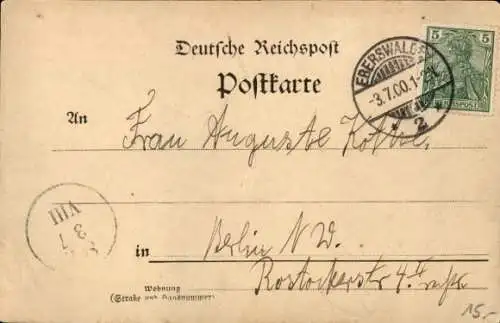 Deutsche Reichspost
Postkarte
5 5
REICHSPOST
EBERSWALDE
-3.7.00.1-2N.
* 2
An
Frau Auguste
VIII
3 7
in
Berlin N.W.
Rostockerstr 4
Wohnung
(Straße und Hausnummer)
15.-